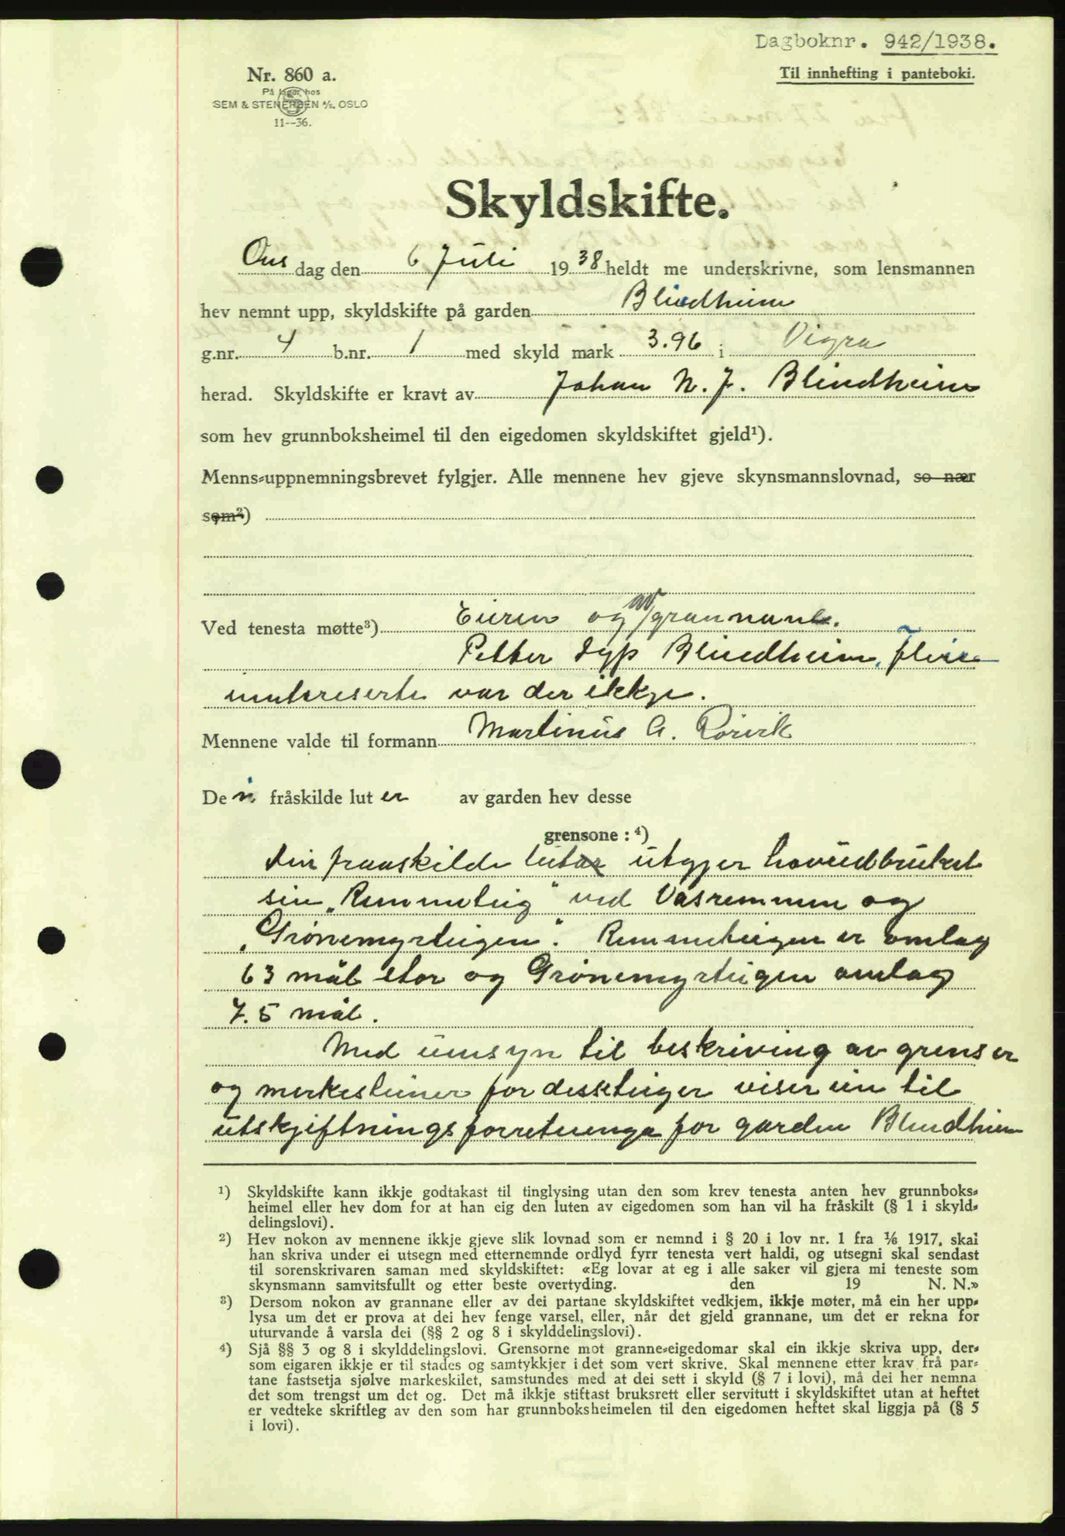 Dagboknr. 942/1938.
Til innhefting i panteboki.
Nr. 860 a.
På lager hos
SEM & STENERSEN A/S. OSLO
11--36.
Skyldskifte.
Ons dag den 6 Juli 1938 heldt me underskrivne, som lensmannen
hev nemnt upp, skyldskifte på garden Blindheim
g.nr. 4 b.nr. 1 med skyld mark 3.96 i Vigra
herad. Skyldskifte er kravt av Johan N. J. Blindheim
som hev grunnboksheimel til den eigedomen skyldskiftet gjeld¹).
Menns-uppnemningsbrevet fylgjer. Alle mennene hev gjeve skynsmannslovnad, so nær
som²)
Ved tenesta møtte³) Eieren og av grannane.
Petter Blindheim. Fleire
interesserte var der ikkje.
Mennene valde til formann Martinus A. Rørvik
De n fråskilde lut er av garden hev desse
grensone : ⁴)
Den fraaskilde lutar utgjer hovudbruket
sin „Remmeteig" ved Vasremmen og
„Grönemyrteigen". Remmeteigen er omlag
63 mål stor og Grönemyrteigen omlag
7.5 mål.
Med umsyn til beskriving av grenser
og merkesteiner for desse teiger viser ein til
utskjiftningsforretninga for garden Blindheim
¹) Skyldskifte kann ikkje godtakast til tinglysing utan den som krev tenesta anten hev grunnboks-
heimel eller hev dom for at han eig den luten av eigedomen som han vil ha fråskilt (§ 1 i skyld-
delingslovi).
²) Hev nokon av mennene ikkje gjeve slik lovnad som er nemnd i § 20 i lov nr. 1 fra 1/6 1917, skal
han skriva under ei utsegn med etternemnde ordlyd fyrr tenesta vert haldi, og utsegni skal sendast
til sorenskrivaren saman med skyldskiftet: «Eg lovar at eg i alle saker vil gjera mi teneste som
skynsmann samvitsfullt og etter beste overtyding. den 19 N. N.»
³) Dersom nokon av grannane eller av dei partane skyldskiftet vedkjem, ikkje møter, må ein her upp-
lysa um det er prova at dei hev fenge varsel, eller, når det gjeld grannane, um det er rekna for
uturvande å varsla dei (§§ 2 og 8 i skylddelingslovi).
⁴) Sjå §§ 3 og 8 i skylddelingslovi. Grensorne mot granne-eigedomar skal ein ikkje skriva upp, der-
som eigaren ikkje er til stades og samtykkjer i det som vert skrive. Skal mennene etter krav frå par-
tane fastsetja sjølve markeskilet, samstundes med at dei sett i skyld (§ 7 i lovi), må dei her nemna
det som trengst um det og. Det må ikkje stiftast bruksrett eller servitutt i skyldskiftet utan at heftet
er vedteke skriftleg av den som har grunnboksheimelen til den eigedomen heftet skal liggja på (§ 5
i lovi).